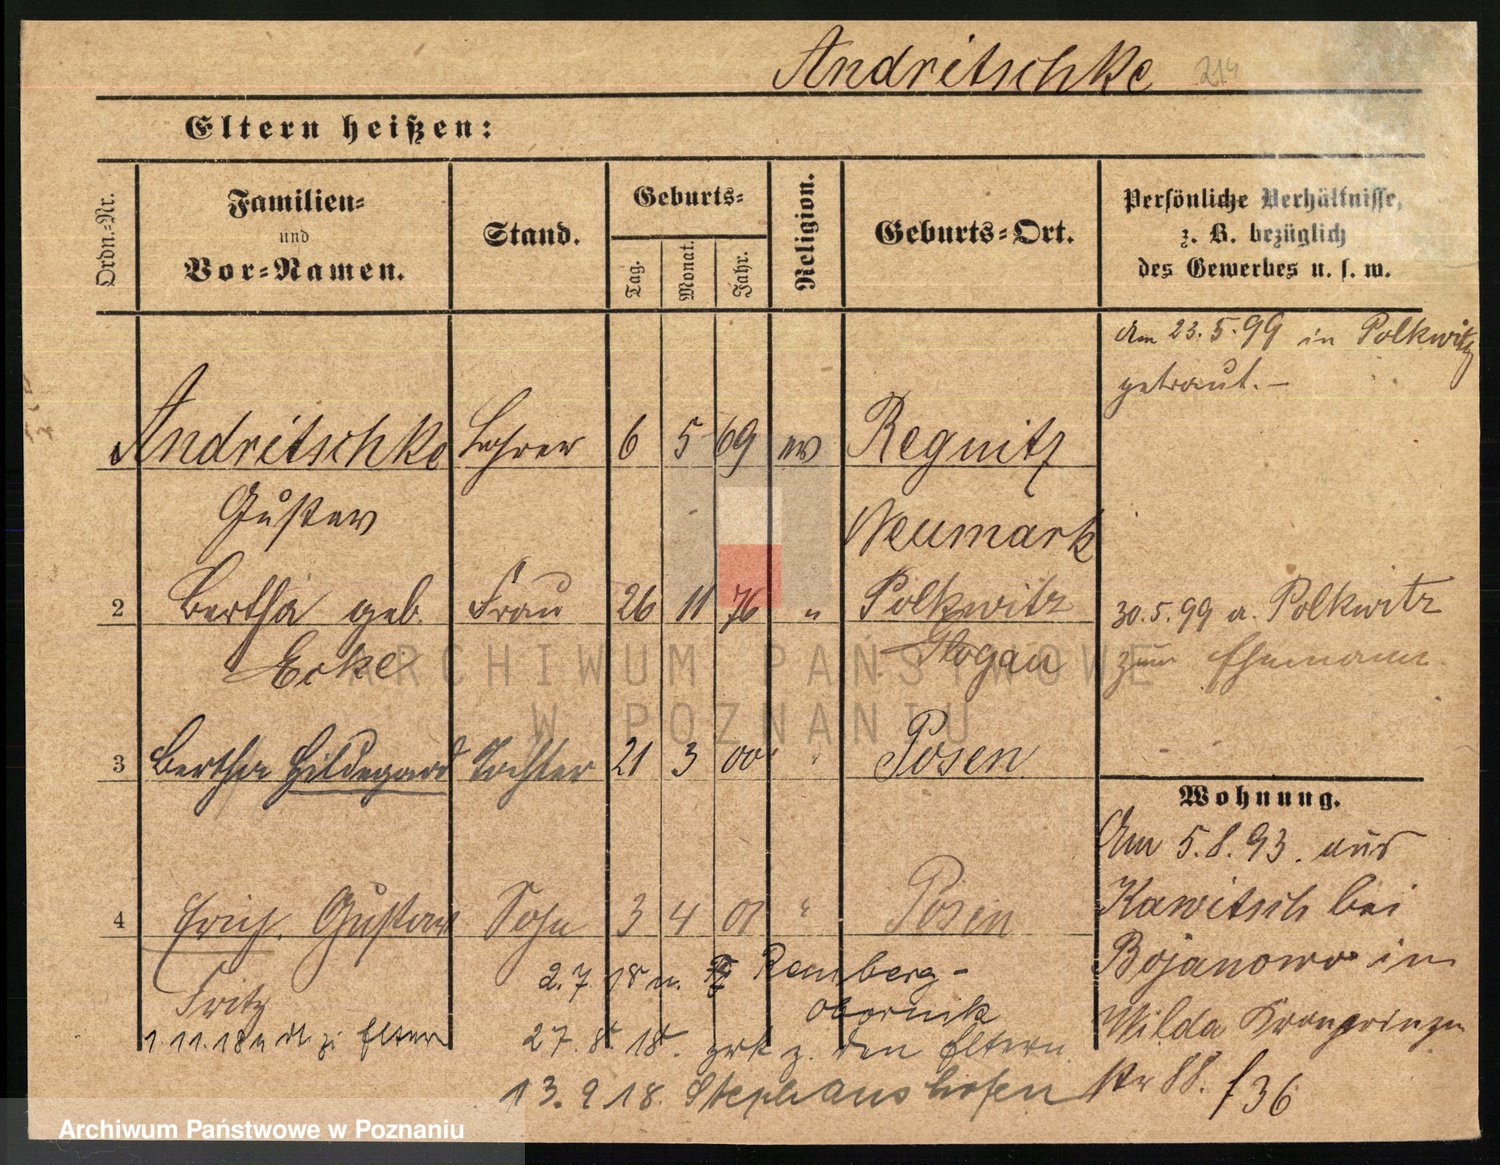 Andritschke 214
Eltern heißen:
Ordn.-Nr.
Familien-
und
Vor-Namen.
Stand.
Geburts-
Tag.
Monat.
Jahr.
Religion.
Geburts-Ort.
Persönliche Verhältnisse,
z. B. bezüglich
des Gewerbes u. s. w.
Am 23.5.99 in Polkwitz
getraut.-
Andritschke Lehrer 6 5 69 ev Regnitz
Gustav Neumark
2 Bertha geb. Frau 26 11 76 " Polkwitz
Ecke Glogau
30.5.99 a. Polkwitz
zum Ehemann
3 Bertha Hildegard Tochter 21 3 00 " Posen
Wohnung.
Am 5.8.93. aus
Kawitsch bei
Bojanowo in
Wilda Kronprinzen
str 88. f 36
4 Erich Gustav Sohn 3 4 01 " Posen
Fritz
2.7.18 n. Remberg-
Obornik
1.11.18 z. Eltern
27.8.18. zrk z. den Eltern.
13.9.18. Stephanshofen
ARCHIWUM PAŃSTWOWE
W POZNANIU
Archiwum Państwowe w Poznaniu